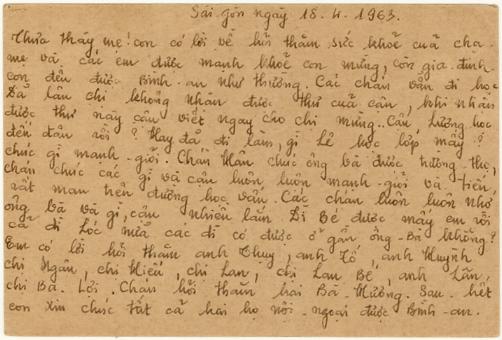 Sài gòn ngày 18.4.1963.
Thưa thầy mẹ: con có lời về hỏi thăm sức khoẻ của cha
mẹ và các em được mạnh khoẻ con mừng, con gia đình
con đều được Bình-an như thường. Các cháu vẫn đi học
Đã lâu chị không nhận được thư của cậu, khi nhận
được thư này cậu viết ngay cho chị mừng. Cậu Lương học
đến đâu rồi? Hay đã đi làm, gì Lê học lớp mấy?
chúc gì mạnh-giỏi. Cháu Han chúc ông bà được trường thọ,
cháu chúc các gì và cậu luôn luôn mạnh-giỏi và tiến
rất mau trên đường học vấn. Các cháu luôn luôn nhớ
ông bà và gì, cậu nhiều lắm. Dì Bé được mấy em rồi
cả dì Lóc nữa các dì có được ở gần ông-Bà không?
Em có lời hỏi thăm anh Thuy, anh Tô, anh Huỳnh
chị Ngân, chị Hiếu, chị Lan, chị Lan Bé, anh Lân,
chị Ba. Lời. Cháu hỏi thăm hai Bà-Mường. Sau-hết
con xin chúc tất cả hai họ nội-ngoại được Bình-an.